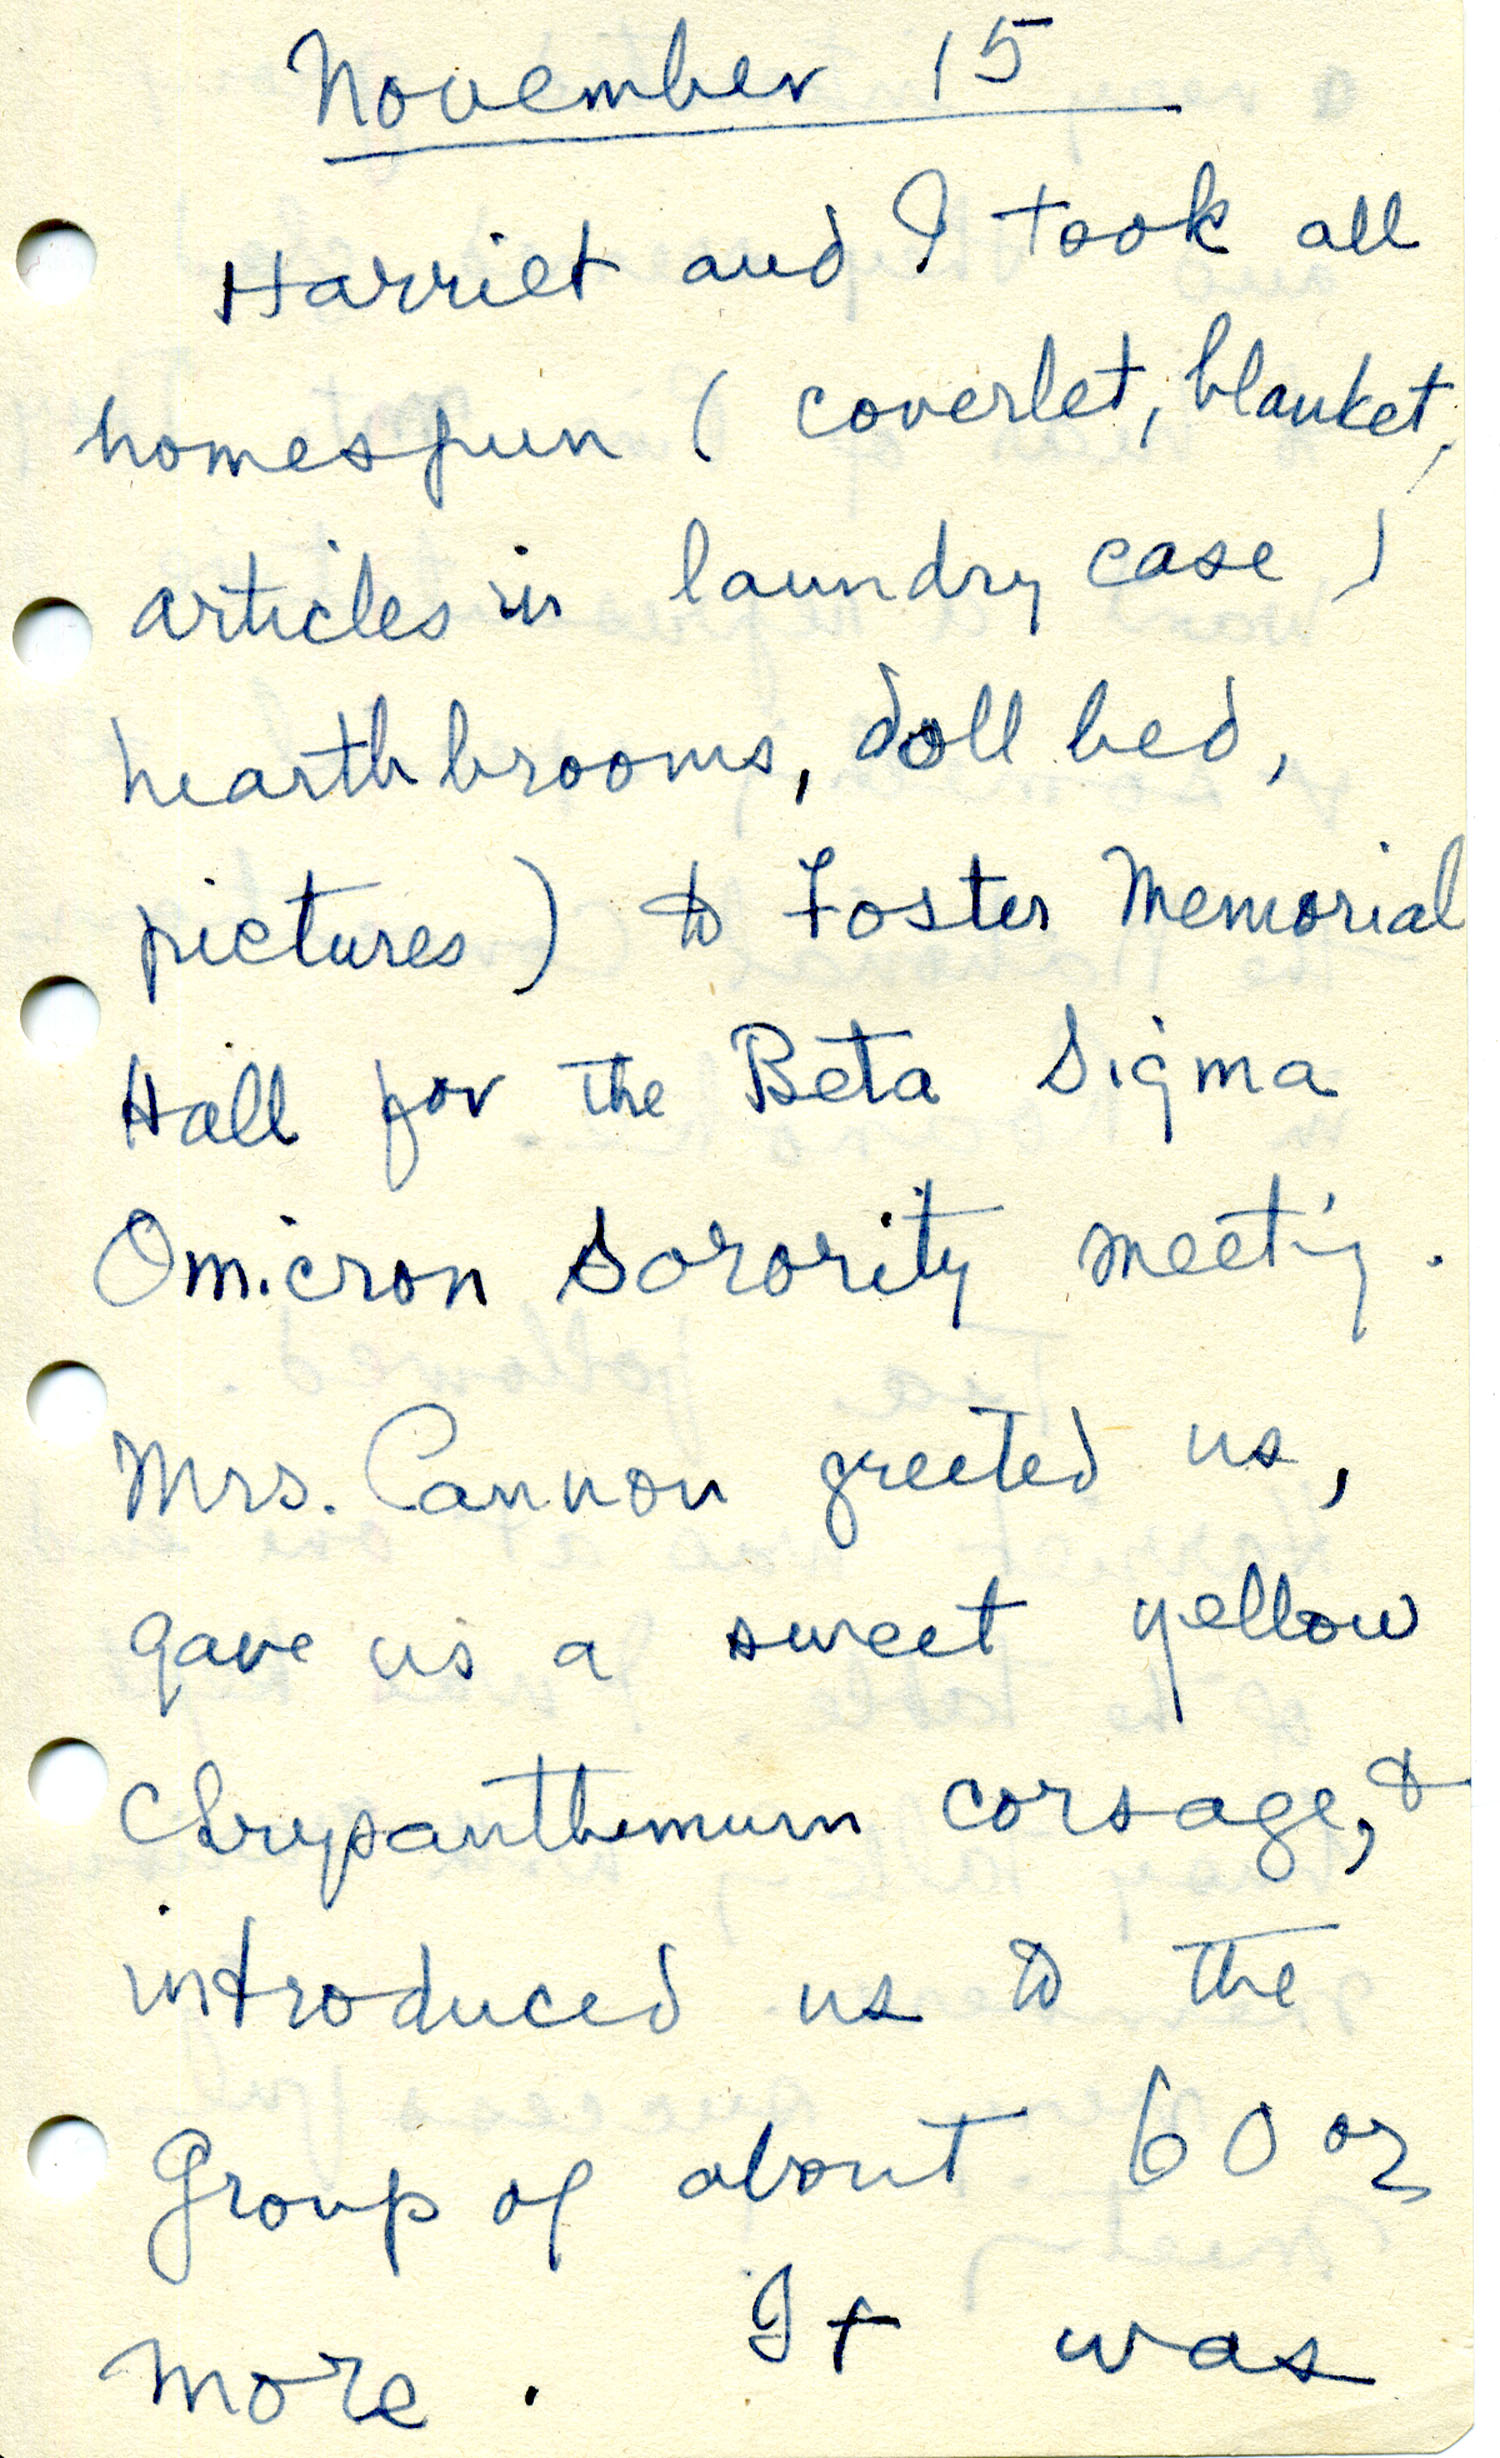 November 15
Harriet and I took all
homespun ( coverlet, blanket,
articles in laundry case )
hearth brooms, doll bed,
pictures ) to Foster Memorial
Hall for the Beta Sigma
Omicron Sorority meeting.
Mrs. Cannon greeted us,
gave us a sweet yellow
Chrysanthemum corsage, &
introduced us to the
Group of about 60 or
more. It was